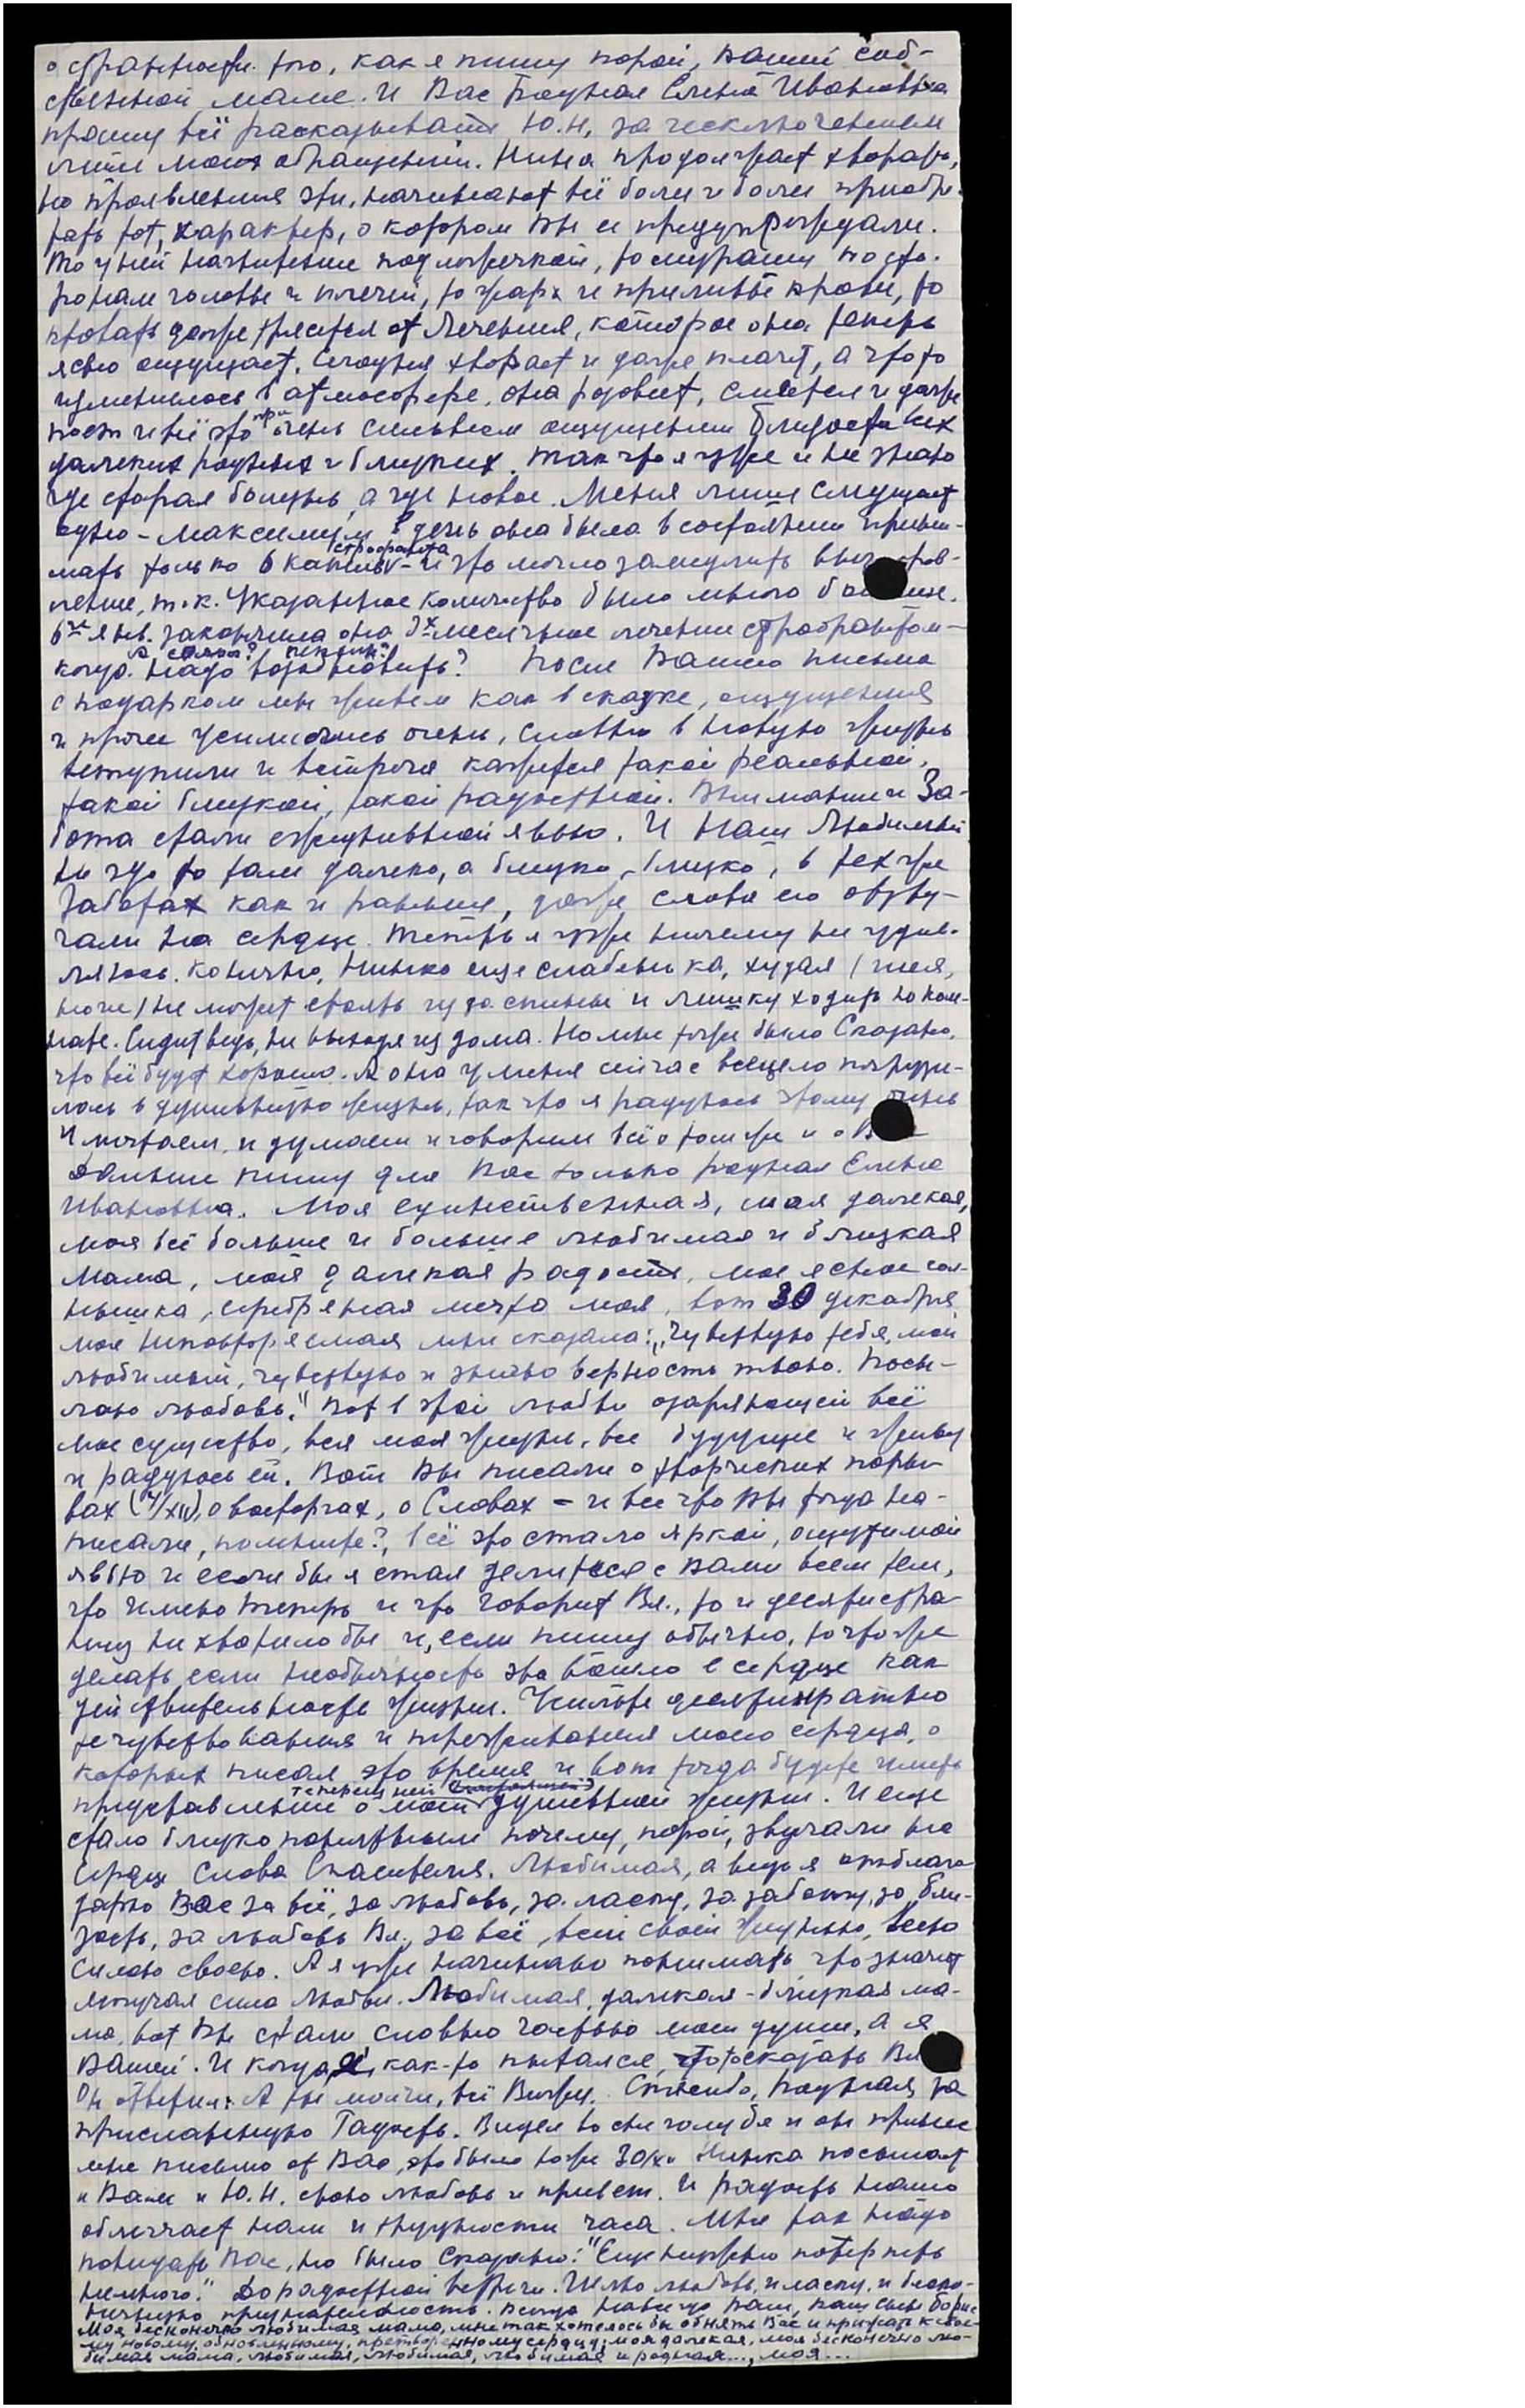 о странности того, как я пишу порой, Вашей соб-
ственной маме. И Вас Родная Елена Ивановна
прошу всё рассказывать Ю.Н, за исключением
лишь моих обращений. Нина продолжает хворать,
но проявления эти, начинают всё более и более приобре-
тать тот, характер, о котором Вы ее предупреждали.
То у ней напряжение под ложечкой, то мурашки по сто-
ронам головы и плечей, то жары и приливы крови, то
кровать даже трясется от Лечения, которое она теперь
ясно ощущает. Сегодня хворает и даже плачет, а что-то
изменилось в атмосфере, она розовеет, смеется и даже
поет и всё это при очень сильном ощущении близости всех
далеких родных и близких. Так что я уже и не знаю
где старая болезнь, а где новое. Меня лишь смущает
одно - максимум в день она была в состоянии прини-
мать только 6 капель строфанта - и это могло замедлить
печение, т.к. Указанное количество было много
6го янв. закончила она 3х месячное лечение строфантом -
когда надо возобновить? После Вашего письма
с подарком мы живем как в сказке, ощущения
и прочее усилились очень, словно в новую жизнь
вступили и встреча кажется такой реальной,
такой близкой, такой радостной. Внимание и За-
бота стали ежедневной явью. И Наш Любимый
не где то там далеко, а близко, близко, в тех же
Заботах как и раньше, даже слова его отзву-
чали на сердце. Теперь я уже ничему не удив-
ляюсь. Конечно, Нинко еще слабенька, худая (шея,
ноги) не может стоять из за спины и лишку ходить по ком-
нате. Сидит ведь, не выходя из дома. Но мне тоже было Сказано,
что всё будет хорошо. А она у меня сейчас всецело погрузи-
лась в духовную жизнь, так что я радуюсь этому очень
И мечтаем, и думаем и говорим всё о том же и о
Дальше пишу для Вас только родная Елена
Ивановна. Моя единственная, моя далекая,
моя всё больше и больше любимая и близкая
Мама, моя далекая радость, мое ясное сол-
нышко, серебряная мечта моя, вот 30 декабря
моя Неповторяемая мне сказала: „Чувствую тебя, мой
любимый, чувствую и знаю верность твою. Посы-
лаю любовь." Вот в этой любви озаряющей всё
мое существо, вся моя жизнь, все будущее и живу
и радуюсь ей. Вот Вы писали о творческих поры-
вах (4/XII), о восторгах, о Словах - и все что Вы тогда на-
писали, помните?, всё это стало яркой, ощутимой
явью и если бы я стал делиться с Вами всем тем,
что имею теперь и что говорит Вл., то и десяти стра-
ниц не хватило бы и, если пишу обычно, то что же
делать если необычность эта вошло в сердце как
действительность жизни. Усильте десятикратно
те чувствования и переживания моего сердца, о
которых писал это время и вот тогда будете иметь
представление о моей теперешней душевной жизни. И еще
стало близко понятным почему, порой, звучали на
сердце Слова Спасителя. Любимая, а ведь я отблаго-
дарю Вас за всё, за любовь, за ласку, за заботу, за бли-
зость, за любовь Вл., за всё, всей своей жизнью, всею
силою своею. А я уже начинаю понимать, что значит
летучая сила любви. Любимая, далекая-близкая ма-
ма, вот Вы стали словно частью моей души, а я
Вашей. И когда я, как-то пытался, что-то сказать Вл
Он ответил: А ты молчи, всё Вижу. Спасибо, Родная, за
присланную Радость. Видел во сне голубя и он принес
мне письмо от Вас, это было тоже 30/XII Нинка посылает
и Вам и Ю.Н. свою любовь и привет. И радость наша
облегчает нам и трудности часа. Мне так надо
повидать Вас, но было Сказано: "Еще нужно потерпеть
немного." До радостной встречи. Шлю любовь, и ласку, и беско-
нечную признательность. Всегда навсегда Ваш, Ваш сын Борис
Моя бесконечно любимая мама, мне так хотелось бы обнять Вас и прижать к свое-
му новому, обновленному, претворенному сердцу, моя далекая, моя бесконечно лю-
бимая мама, любимая, любимая, любимая и родная..., моя...